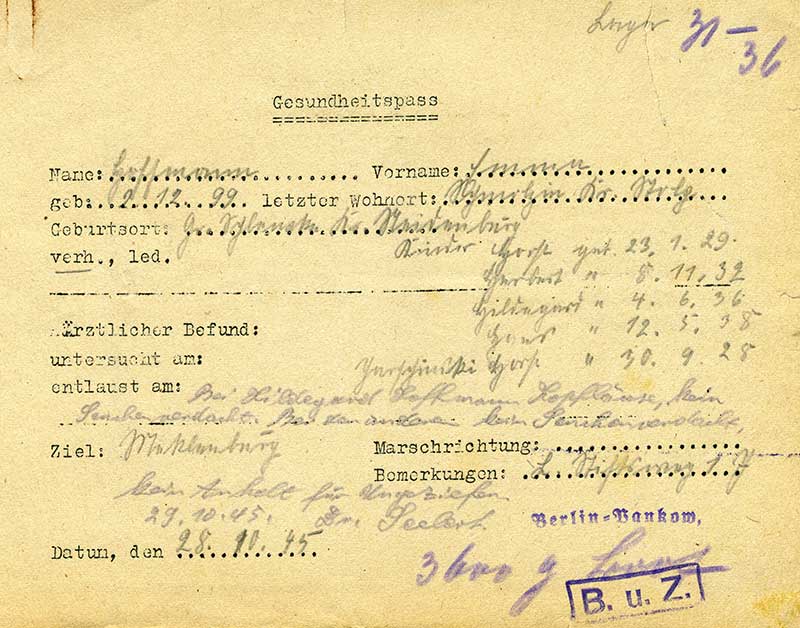 Lager 31-36
Gesundheitspass
Name: Hoffmann Vorname: Emma
geb: 2.12.99 letzter Wohnort: Kr. Stolp
Geburtsort: Gr. Kr. Neidenburg
verh., led. Kinder Horst geb. 23.1.29.
Herbert " 8.11.32
Hildegard " 4.6.36
Ärztlicher Befund: Hans " 12.5.38
untersucht am: Horst " 30.9.28
entlaust am: Bei Hildegard Hoffmann Kopfläuse, kein
Seuchenverdacht. Bei den anderen kein Seuchenverdacht,
Ziel: Meklenburg Marschrichtung:
Bemerkungen: L. Stiftsweg 1
kein Anhalt für Ungeziefer
29.10.45. Dr. Seelert Berlin-Pankow,
Datum, den 28.10.45
3600 g
B. u. Z.